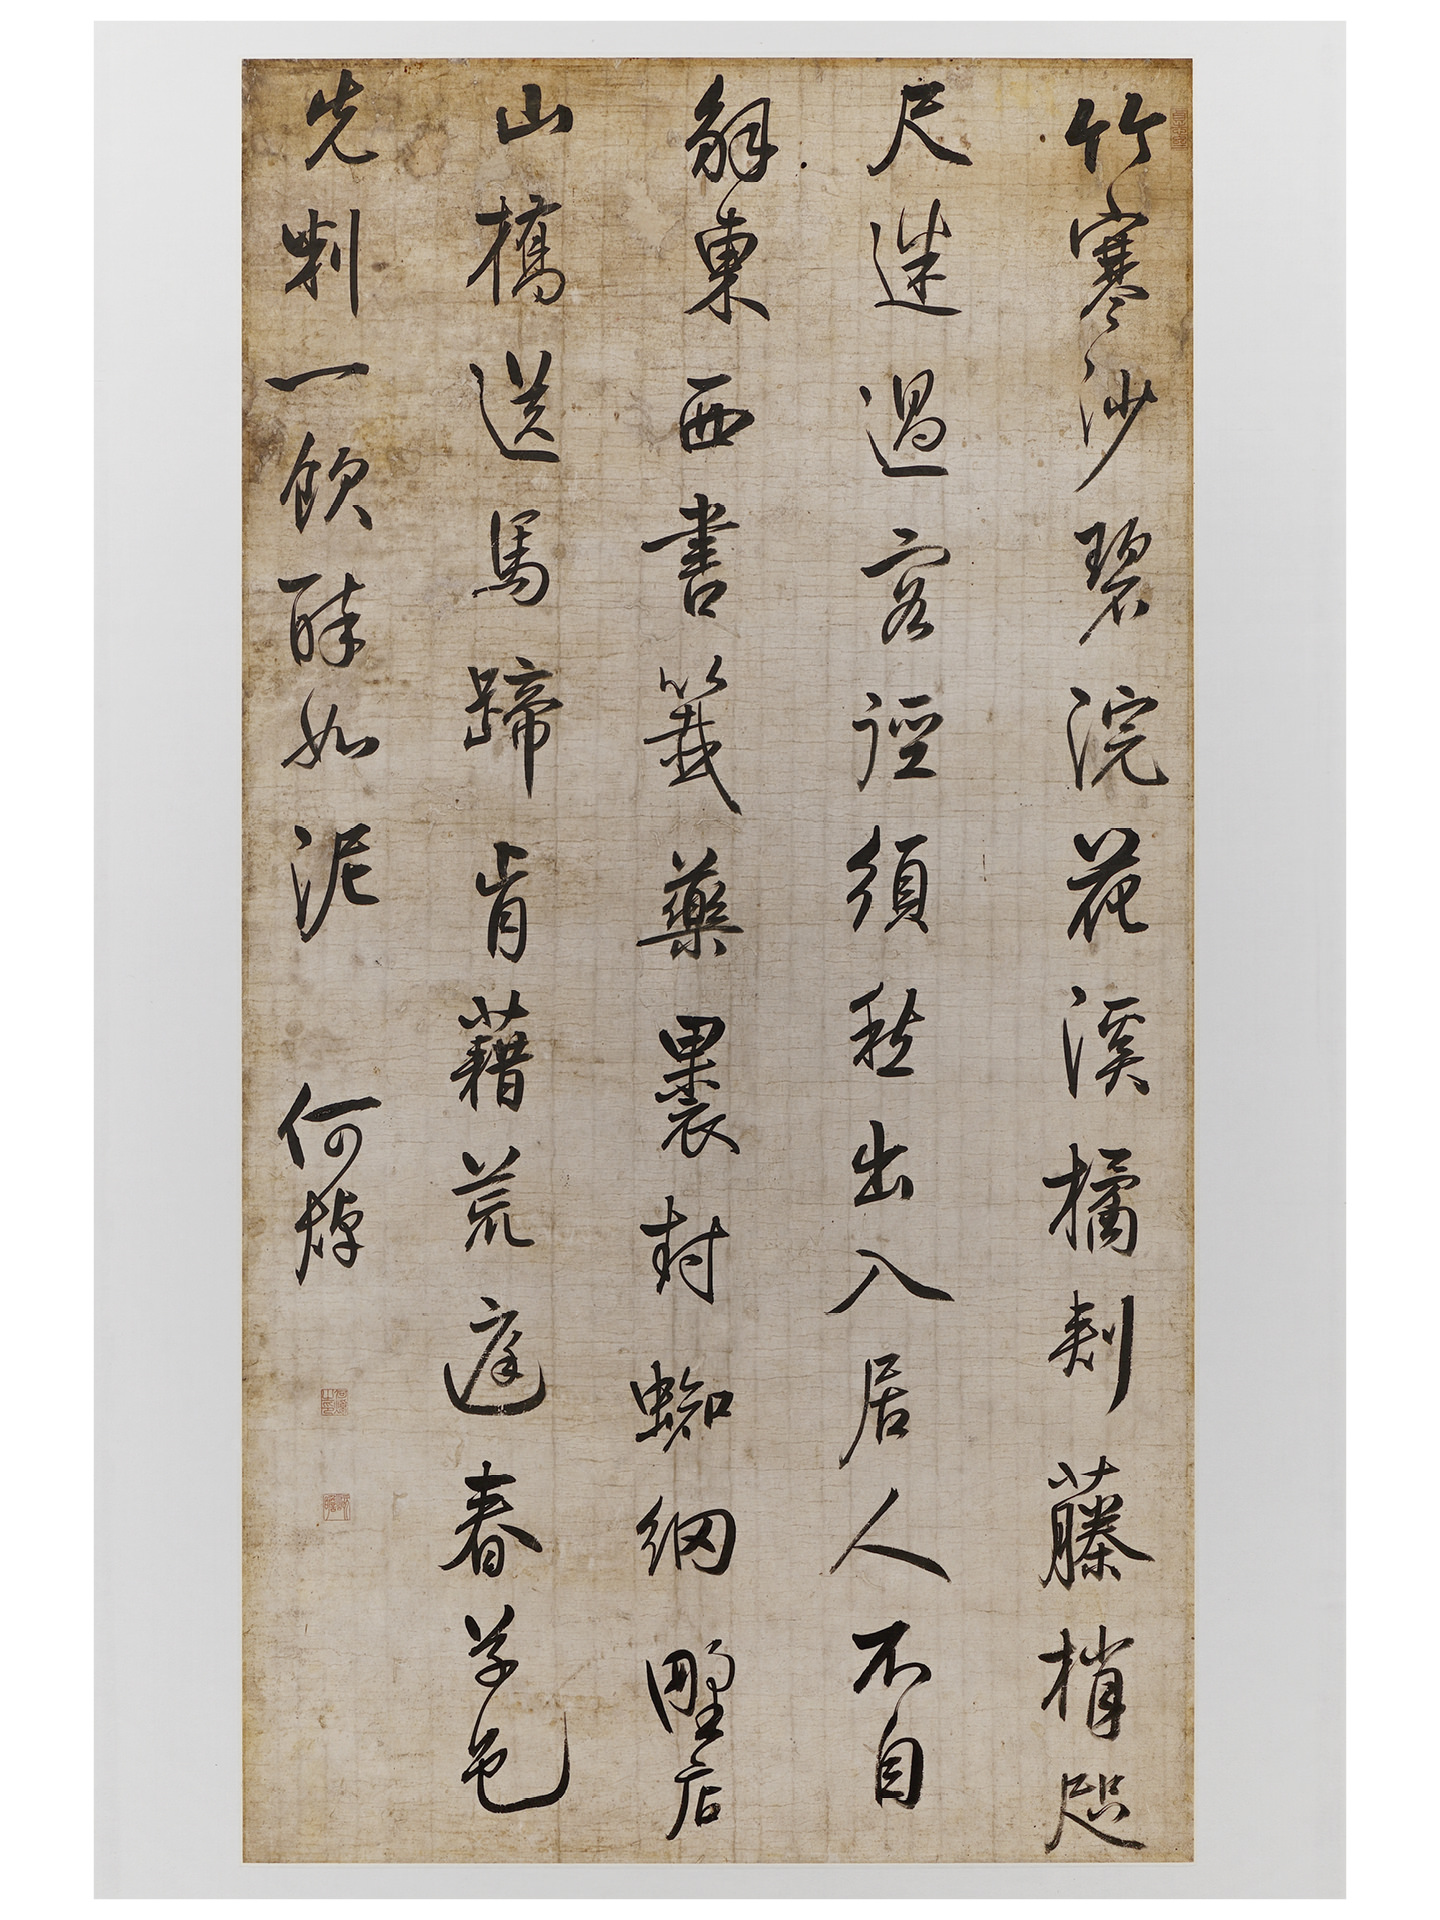 竹寒沙碧浣花溪橘刺藤梢咫
尺迷過客徑須愁出入居人不自
解東西書籤藥裹封蜘網野店
山橋送馬蹄肯藉荒庭春草色
先判一飲醉如泥 何焯
何焯之印
屺瞻